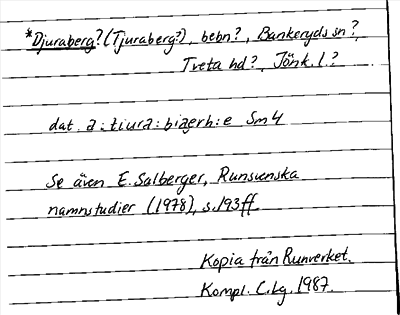 *Djuraberg? (Tjuraberg?), bebn?, Bankeryds sn?,
Tveta hd?, Jönk. l.?
dat. a:tiura:biaerh:e Sm 4
Se även E. Salberger, Runsvenska
namnstudier (1978), s. 193ff
Kopia från Runverket.
Kompl. C.Lg. 1987.